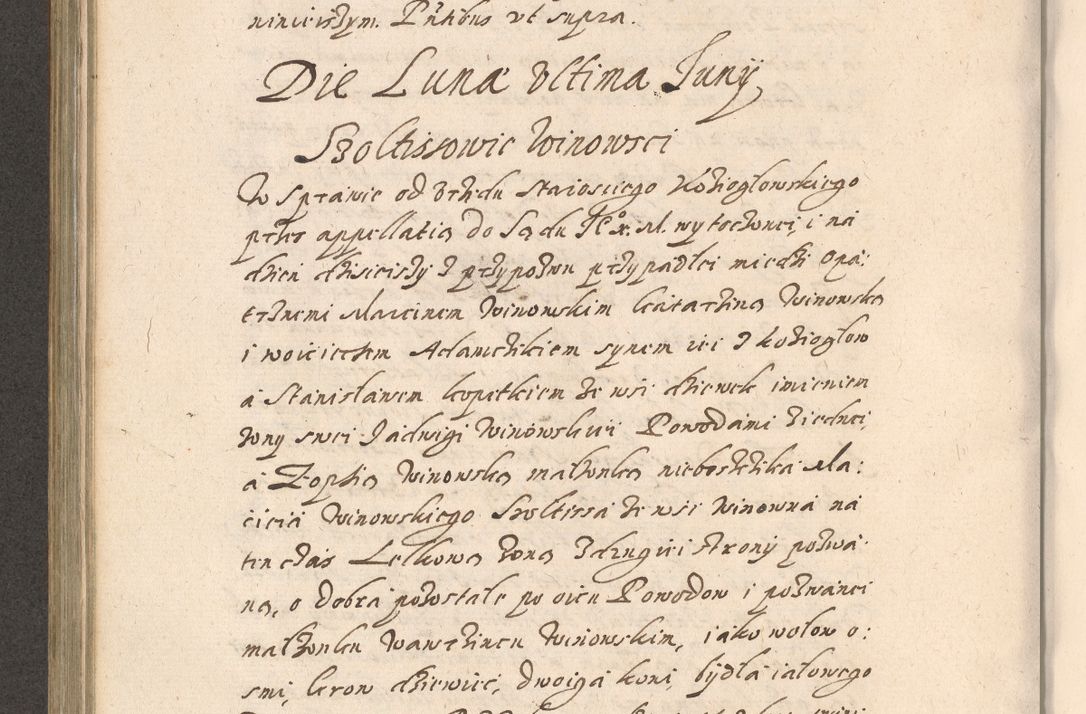 ninieiszym. Pñtibus vt supra.
Die Lunæ vltima Junÿ
Szoltissowie Winowsci
W Sprawie od vrzędu Starosciego Koziogłowskiego
przez appellatią do Sądu Je° x. M. wytoczonei, i na
dzien dzisieiszy z przypozwu przypadłei miedzi Opa:
trznemi Marcinem Winowskim Catarziną Winowską
i woiciechem Adamczikiem synem iei z koziogłow
á Stanisławem kopetkiem ze wsi dziewek imieniem
żony swei Jadwigi Winowskiei Powodami ziednei,
á Zophią Winowską małżonką nieboszczika Ma:
cieia Winowskiego Szoltissa ze wsi Winowna ná
ten czás Lelkową żoną z drugiei strony pozwá
ną, o dobrá pozostałe po oicu Powodow i pozwanei
małżonku Wawrzincu Winowskim, iáko wołow o:
smi, krow dziewiec, dwoigá koni, bÿdłá iáłowego